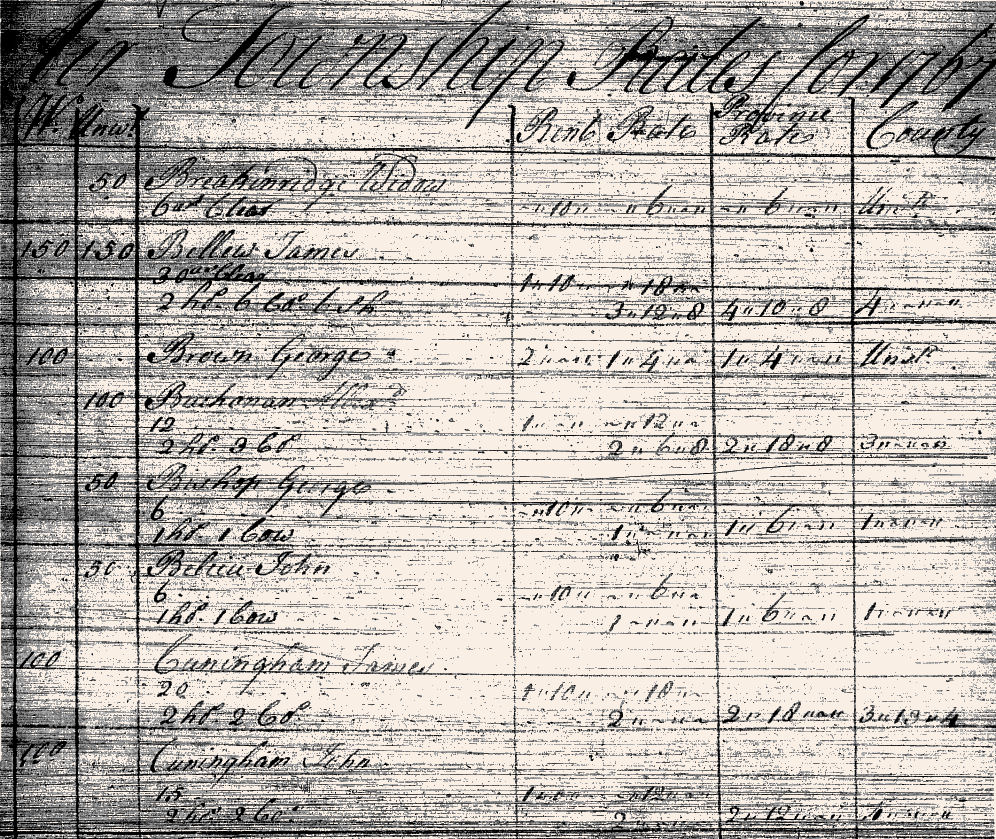 Township Rates for 1767
Wt. Unwt. Rent Rate Province Rate County
50 Breakinridge Widow
6 as Clear "10" "6"" "6""
150 150 Bellew James
30 as Clear 1"10" "18"
2 hs. 6 Cos. 6 sh 3"12"8 4"10"8 4"""
100 Brown George 2"" 1"4" 1"4"
100 Buchanan
12 1"" "12"
2 hs. 3 Cos. 2"6"8 2"18"8 3"""
50 Bushop George
6 "10" "6"
1 hs. 1 Cow 1"" 1"6" 1"""
50 Beliew John
6 "10" "6"
1 hs. 1 Cow 1"" 1"6" 1"""
100 Cuningham James
20 1"10" "18"
2 hs. 2 Cos. 2"" 2"18" 3"13"4
100 Cuningham John
15 "12"
2 hs. 2 Cos. 2"" 2"12"